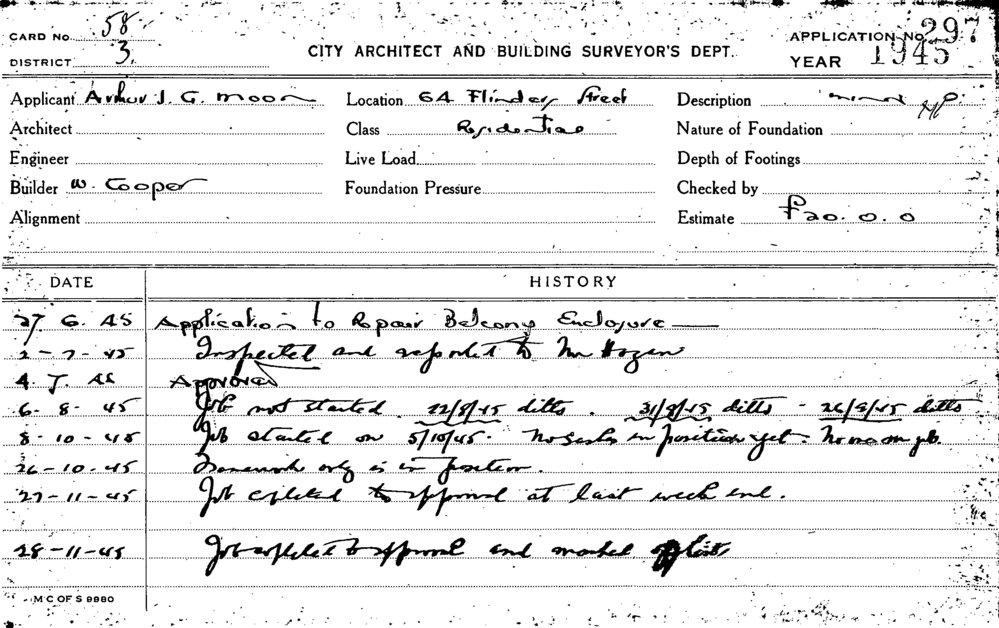 CARD No. 58 APPLICATION No. 297
DISTRICT 3. CITY ARCHITECT AND BUILDING SURVEYOR'S DEPT. YEAR 1945
Applicant Arthur J. G. Moon Location 64 Flinders Street Description minor
Architect Class Residential Nature of Foundation
Engineer Live Load Depth of Footings
Builder W. Cooper Foundation Pressure Checked by
Alignment Estimate £20. 0. 0
DATE HISTORY
27. 6. 45 Application to Repair Balcony Enclosure
2-7-45 Inspected and reported to Mr Hogen
4. 7. 45 Approved
6-8-45 Job not started. 22/8/45 ditto. 31/8/45 ditto - 26/9/45 ditto
8-10-45 Job started on 5/10/45. No sashes in position yet. No men on job.
26-10-45 Framework only is in position.
27-11-45 Job completed to approval at last week end.
28-11-45 Job completed to approval and marked off list
M C OF S 9980